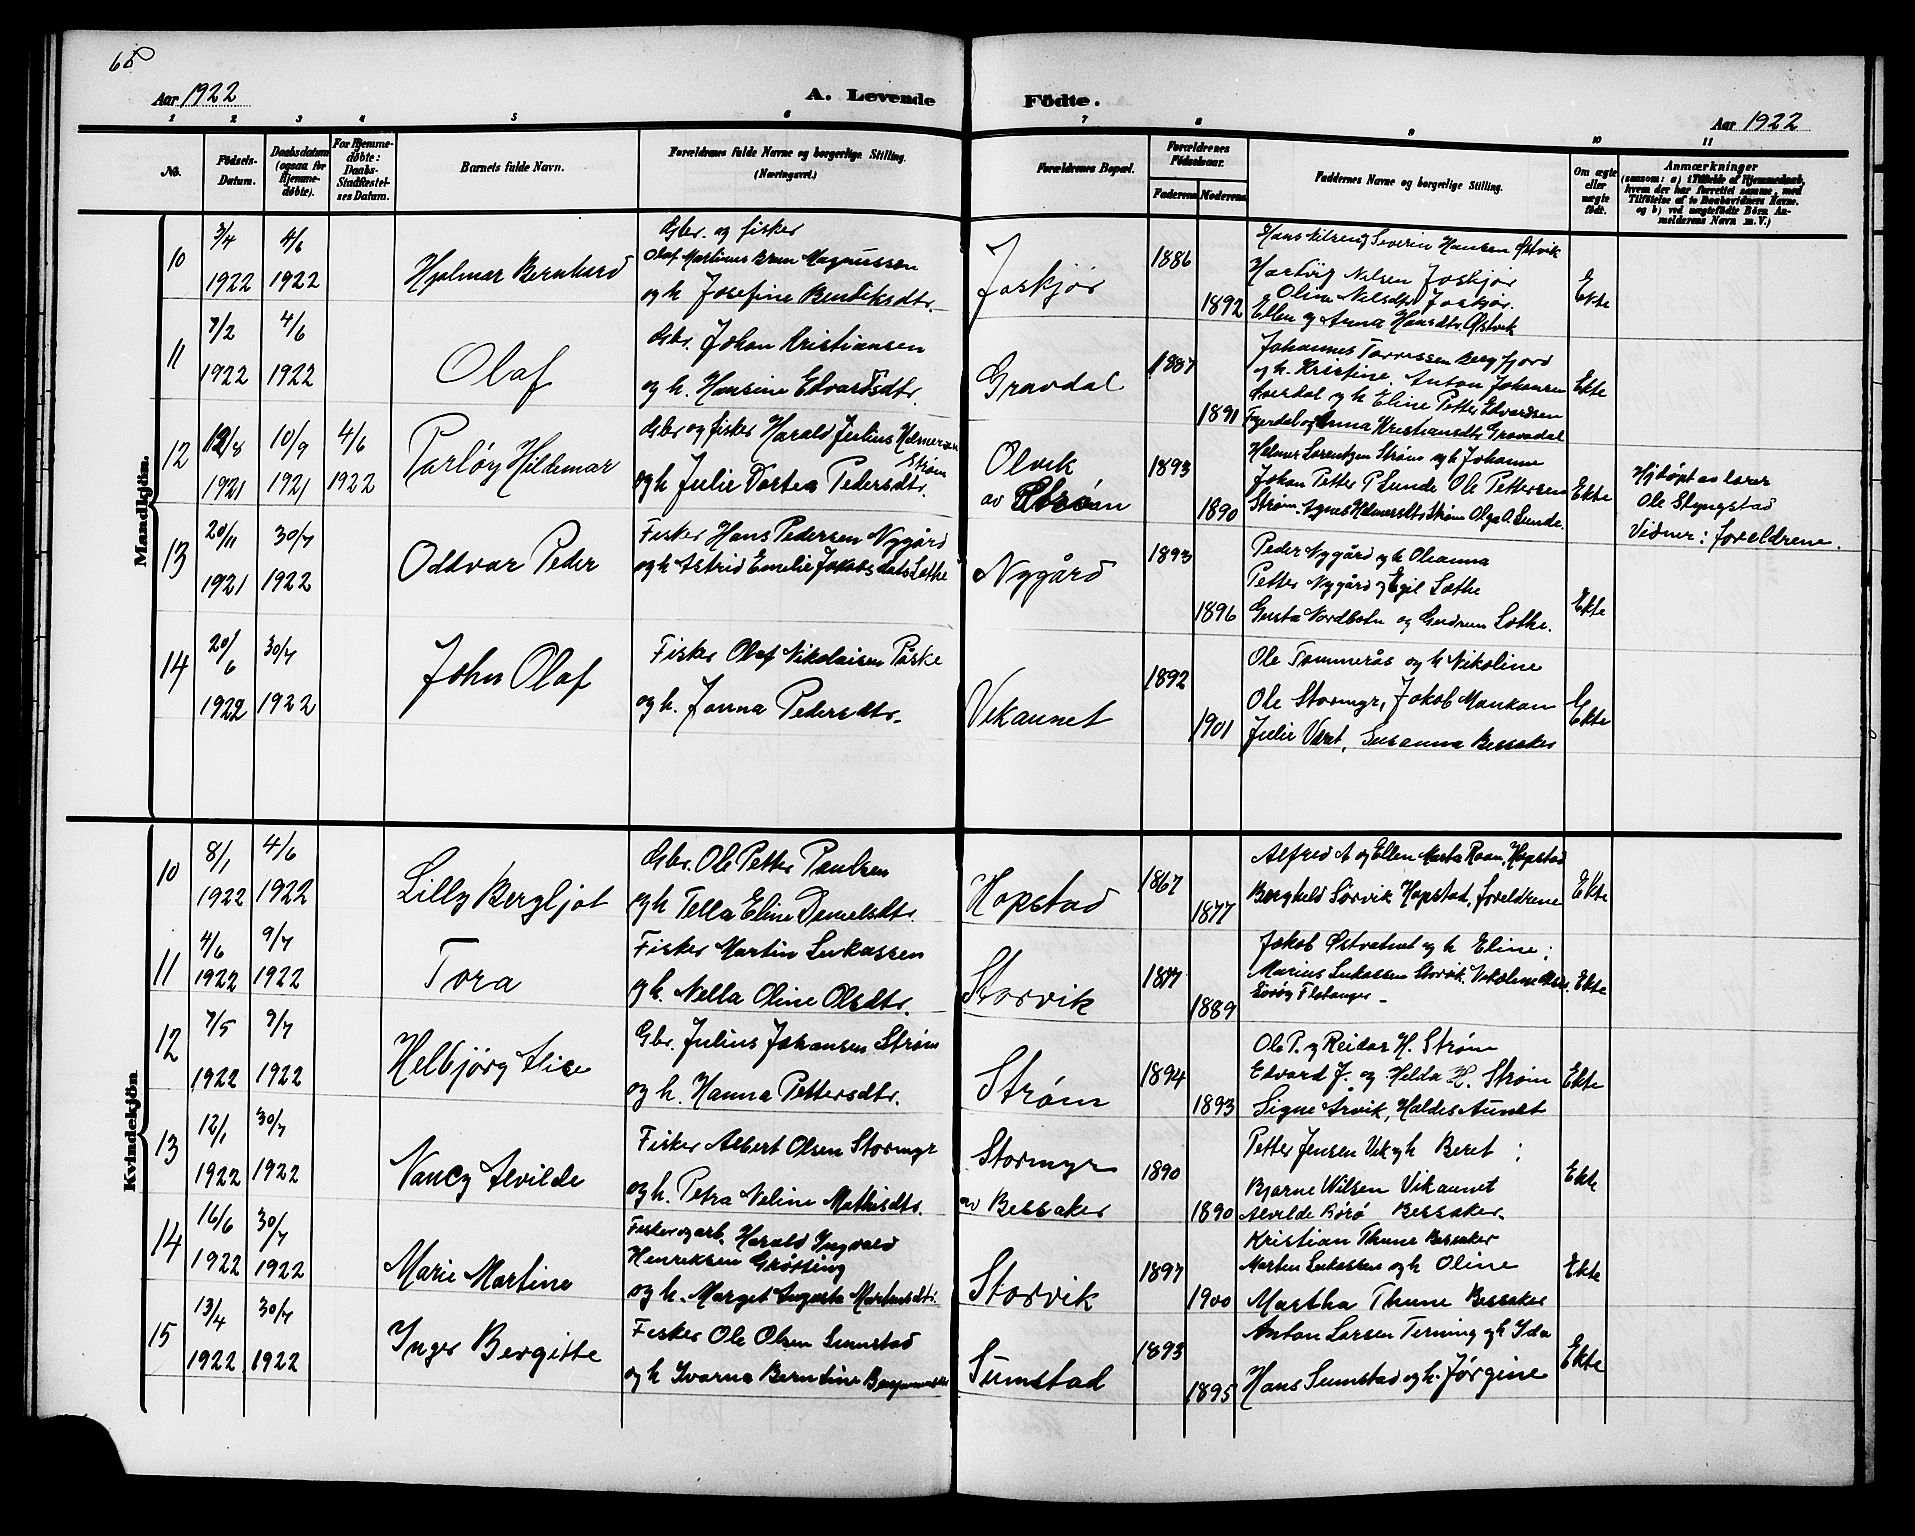 65
Aar 1922
A. Levende
Födte.
Aar 1922
1 2 3 4 5 6 7 8 9 10 11
No.
Födsels-
Datum.
Daabsdatum
(ogsaa for
Hjemme-
døbte).
For Hjemme-
døbte:
Daabs-
Stadfæstel-
ses Datum.
Barnets fulde Navn.
Forældrenes fulde Navne og borgerlige Stilling.
(Næringsvei.)
Forældrenes Bopæl.
Forældrenes
Fødselsaar.
Faderens
Moderens
Faddernes Navne og borgerlige Stilling.
Om ægte
eller
uægte
født.
Anmærkninger
(saasom: a) i Tilfælde af Hjemmedaab,
hvem der har forrettet samme, med
Tilføielse af to Daabsvidners Navne.
og b) ved uægtefødte Børn An-
melderens Navn m. V.)
Mandkjön.
10
3/4
1922
4/6
1922
Hjalmar Bernhard
Gbr. og fisker
Olaf Martinus Brun Magnussen
og h. Josefine Bendiksdtr.
Joskjør
1886
1892
Hans Nilsen, Severin Hansen Østvik
Hartvig Nilsen Joskjør
Olina Nilsdtr Joskjør.
Ellen og Anna Hansdtr. Østvik
Ekte
11
7/2
1922
4/6
1922
Olaf
Gbr. Johan Kristiansen
og h. Hansine Edvardsdtr.
Gravdal
1887
1891
Johannes Torressen Bergfjord
og h. Kristine. Anton Johansen
og h Eline Petter Edvardsen
Anna Kristiansdtr Gravadal
Ekte
12
12/8
1921
10/9
1921
4/6
1922
Parløy Hildemar
Gbr og fisker Harald Julius Helmersen
Strøm
og h Julie Dortea Pedersdtr.
Olvik
av Strøm
1893
1890
Helmer Lorentzen Strøm og h Johanne
Johan Petter P Lunde Ole Pettersen
Strøm. Agnes Helmersdtr Strøm Olga O. Lunde.
Ekte
Hjdøpt av lærer
Ole Slyngstad
Vidner: foreldrene.
13
20/11
1921
30/7
1922
Oddvar Peder
Fisker Hans Pedersen Nygård
og h Astrid Emelie Jakobsdats Løthe
Nygård
1893
1896
Peder Nygård og h Oleanna
Petter Nygård og Egil Løthe
Gusta Nordbotn og Gudrun Løthe.
Ekte
14
20/6
1922
30/7
1922
John Olaf
Fisker Olaf Nikolaisen Påske
og h. Jonna Pedersdtr.
Vikaunet
1892
1901
Ole Tommerås og h Nikoline
Ole Stormyr, Jakob Monkan
Julie Vant, Susanna Bessaker
Ekte
Kvindekjön
10
8/1
1922
4/6
1922
Lilly Bergljot
Gbr. Ole Petter Paulsen
og h Tella Eline Danielsdtr.
Hopstad
1867
1877
Alfred A og Ellen Marta Roan, Hopstad
Berghild Sørvik Hopstad, foreldrene
Ekte
11
4/6
1922
9/7
1922
Tora
Fisker Martin Lukassen
og h. Nella Oline Olsdtr.
Storvik
1877
1889
Jakob Østvatnet og h Eline;
Marius Lukassen Storvik
Flatanger –
Ekte
12
7/5
1922
9/7
1922
Helbjørg Alice
Gbr. Julius Johansen Strøm
og h. Hanna Pettersdtr.
Strøm
1894
1893
Ole P. og Reidar H. Strøm
Edvard J. og Helda H. Strøm
Signe Arvik, Haldis Aunet
Ekte
13
12/1
1922
30/7
1922
Nancy Alvilde
Fisker Albert Olsen Stormyr
og h. Petra Neline Mathisdtr.
Stormyr
av Bessaker
1890
1890
Petter Jensen Vik og h Beret;
Bjarne Wilsen Vikaunet
Alvilde Rørø Bessaker.
Ekte
14
16/6
1922
30/7
1922
Marie Martine
Fisker og arb. Harald Ingvald
Henriksen Grøtting
og h. Marget Augusta Martinsdtr.
Storvik
1897
1900
Kristian Thune Bessaker
Morten Lukassen og h Oline
Martha Thune Bessaker
Ekte
15
13/4
1922
30/7
1922
Inger Bergitte
Fisker Ole Olsen Sumstad
og h Ivarna Berntine
Sumstad
1893
1895
Anton Larsen Terning og h Ida
Hans Sumstad og h. Jørgine
Ekte